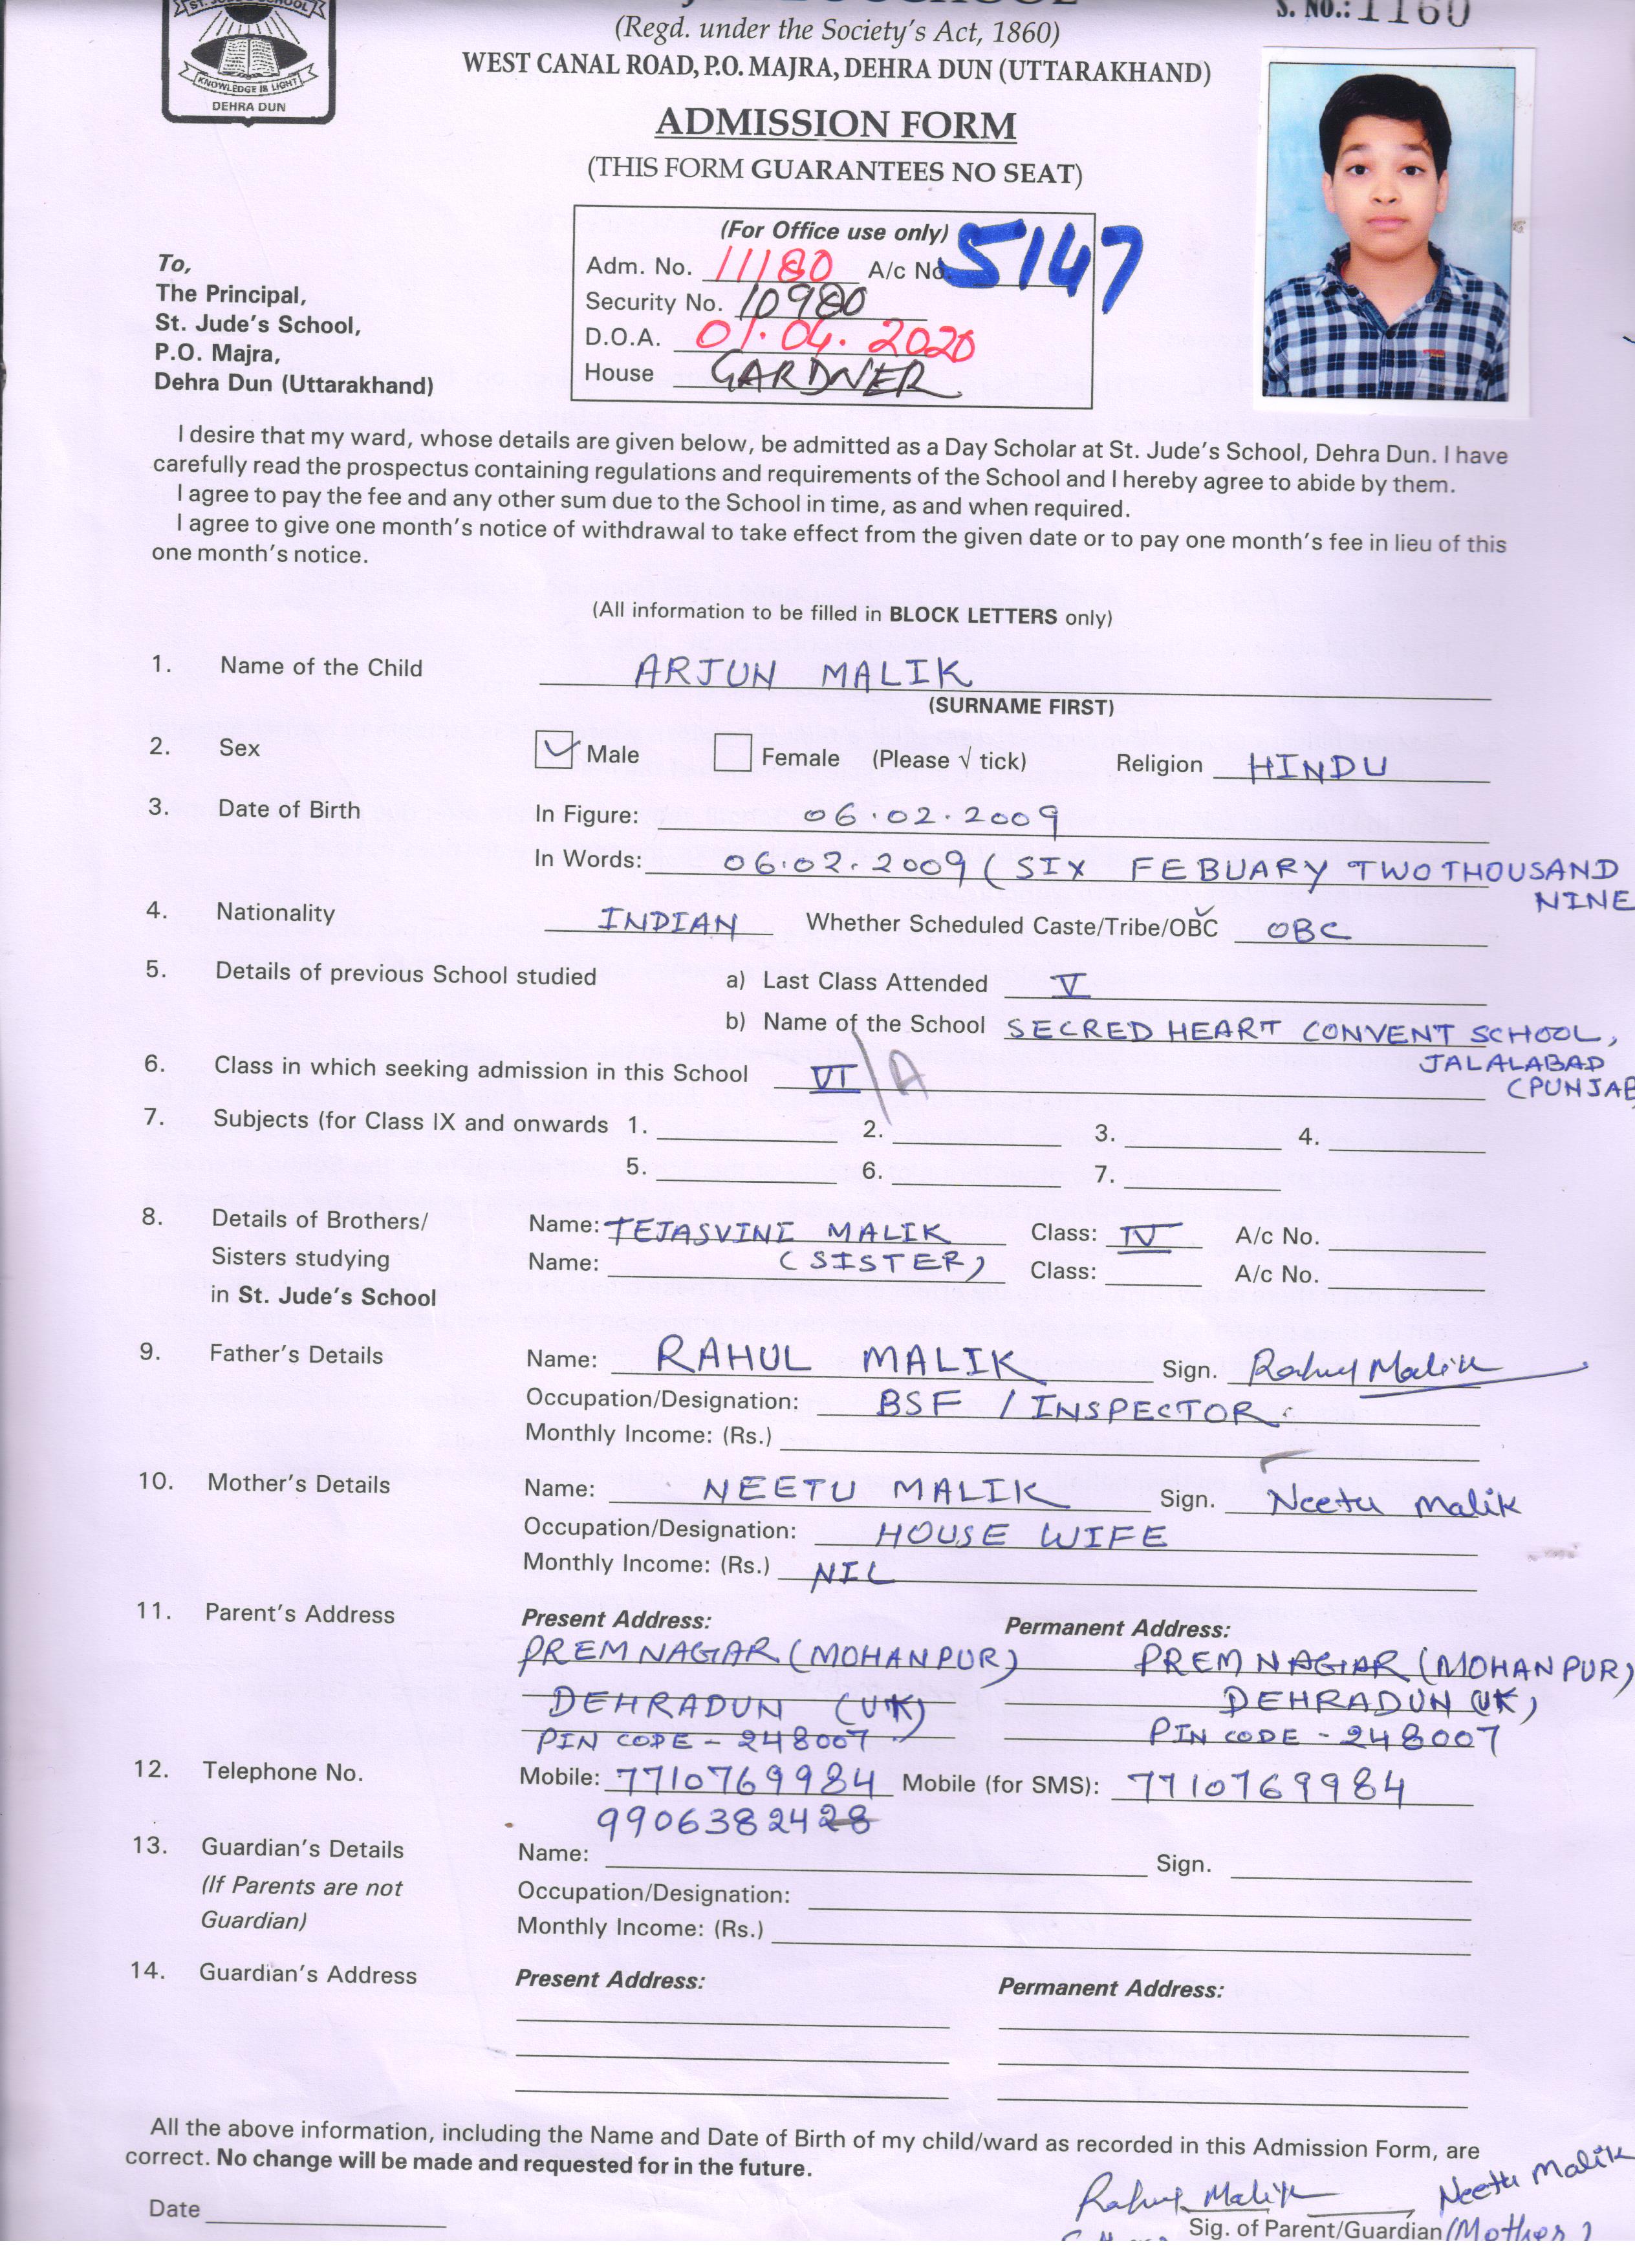 ST. JUDE'S SCHOOL
KNOWLEDGE IS LIGHT
DEHRA DUN
S. NO.: 1160
(Regd. under the Society's Act, 1860)
WEST CANAL ROAD, P.O. MAJRA, DEHRA DUN (UTTARAKHAND)
ADMISSION FORM
(THIS FORM GUARANTEES NO SEAT)
To,
The Principal,
St. Jude's School,
P.O. Majra,
Dehra Dun (Uttarakhand)
(For Office use only)
Adm. No. 11180 A/c No. 5147
Security No. 10980
D.O.A. 01.04.2020
House GARDNER
I desire that my ward, whose details are given below, be admitted as a Day Scholar at St. Jude's School, Dehra Dun. I have
carefully read the prospectus containing regulations and requirements of the School and I hereby agree to abide by them.
I agree to pay the fee and any other sum due to the School in time, as and when required.
I agree to give one month's notice of withdrawal to take effect from the given date or to pay one month's fee in lieu of this
one month's notice.
(All information to be filled in BLOCK LETTERS only)
1. Name of the Child ARJUN MALIK
(SURNAME FIRST)
2. Sex Male Female (Please √ tick) Religion HINDU
3. Date of Birth In Figure: 06.02.2009
In Words: 06.02.2009 (SIX FEBUARY TWO THOUSAND
NINE
4. Nationality INDIAN Whether Scheduled Caste/Tribe/OBC OBC
5. Details of previous School studied a) Last Class Attended V
b) Name of the School SECRED HEART CONVENT SCHOOL,
JALALABAD
(PUNJAB
6. Class in which seeking admission in this School VI/A
7. Subjects (for Class IX and onwards 1. 2. 3. 4.
5. 6. 7.
8. Details of Brothers/ Name: TEJASVINI MALIK Class: IV A/c No.
Sisters studying Name: (SISTER) Class: A/c No.
in St. Jude's School
9. Father's Details Name: RAHUL MALIK Sign. Rahul Malik
Occupation/Designation: BSF / INSPECTOR
Monthly Income: (Rs.)
10. Mother's Details Name: NEETU MALIK Sign. Neetu Malik
Occupation/Designation: HOUSE WIFE
Monthly Income: (Rs.) NIL
11. Parent's Address Present Address: Permanent Address:
PREM NAGAR (MOHANPUR) PREM NAGAR (MOHANPUR)
DEHRADUN (UK) DEHRADUN (UK)
PIN CODE - 248007 PIN CODE - 248007
12. Telephone No. Mobile: 7710769984 Mobile (for SMS): 7710769984
9906382428
13. Guardian's Details Name: Sign.
(If Parents are not Occupation/Designation:
Guardian) Monthly Income: (Rs.)
14. Guardian's Address Present Address: Permanent Address:
All the above information, including the Name and Date of Birth of my child/ward as recorded in this Admission Form, are
correct. No change will be made and requested for in the future.
Rahul Malik Neetu Malik
Date Sig. of Parent/Guardian (Mother)